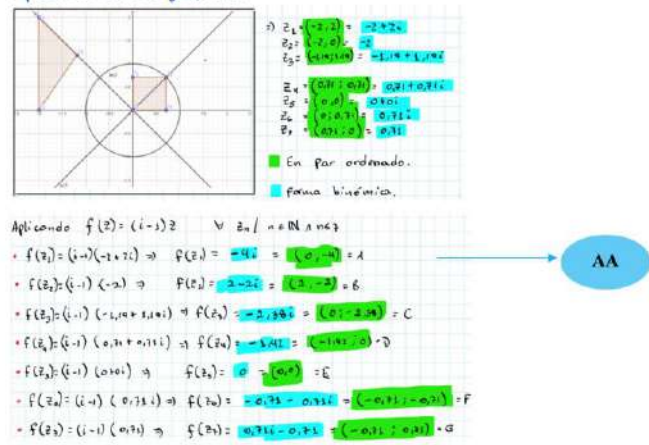 =) Z₁ = (-2, 2) = -2+2i
Z₂ = (-2, 0) = -2
Z₃ = (-1,19; 1,19) = -1,19 + 1,19i
Z₄ = (0,71; 0,71) = 0,71 + 0,71i
Z₅ = (0,0) = 0+0i
Z₆ = (0; 0,71) = 0,71i
Z₇ = (0,71; 0) = 0,71
En par ordenado.
forma binómica.
Aplicando f(z) = (i-1)z ∀ zₙ / n ∈ ℕ ∧ n≤7
• f(z₁) = (i-1)(-2+2i) ⇒ f(z₁) = -4i = (0,-4) = A
• f(z₂) = (i-1)(-2) ⇒ f(z₂) = 2-2i = (2,-2) = B
• f(z₃) = (i-1)(-1,19+1,19i) ⇒ f(z₃) = -2,38i = (0; -2,38) = C
• f(z₄) = (i-1)(0,71+0,71i) ⇒ f(z₄) = -1,42 = (-1,42; 0) = D
• f(z₅) = (i-1)(0+0i) ⇒ f(z₅) = 0 = (0,0) = E
• f(z₆) = (i-1)(0,71i) ⇒ f(z₆) = -0,71 - 0,71i = (-0,71; -0,71) = F
• f(z₇) = (i-1)(0,71) ⇒ f(z₇) = 0,71i - 0,71 = (-0,71; 0,71) = G
AA